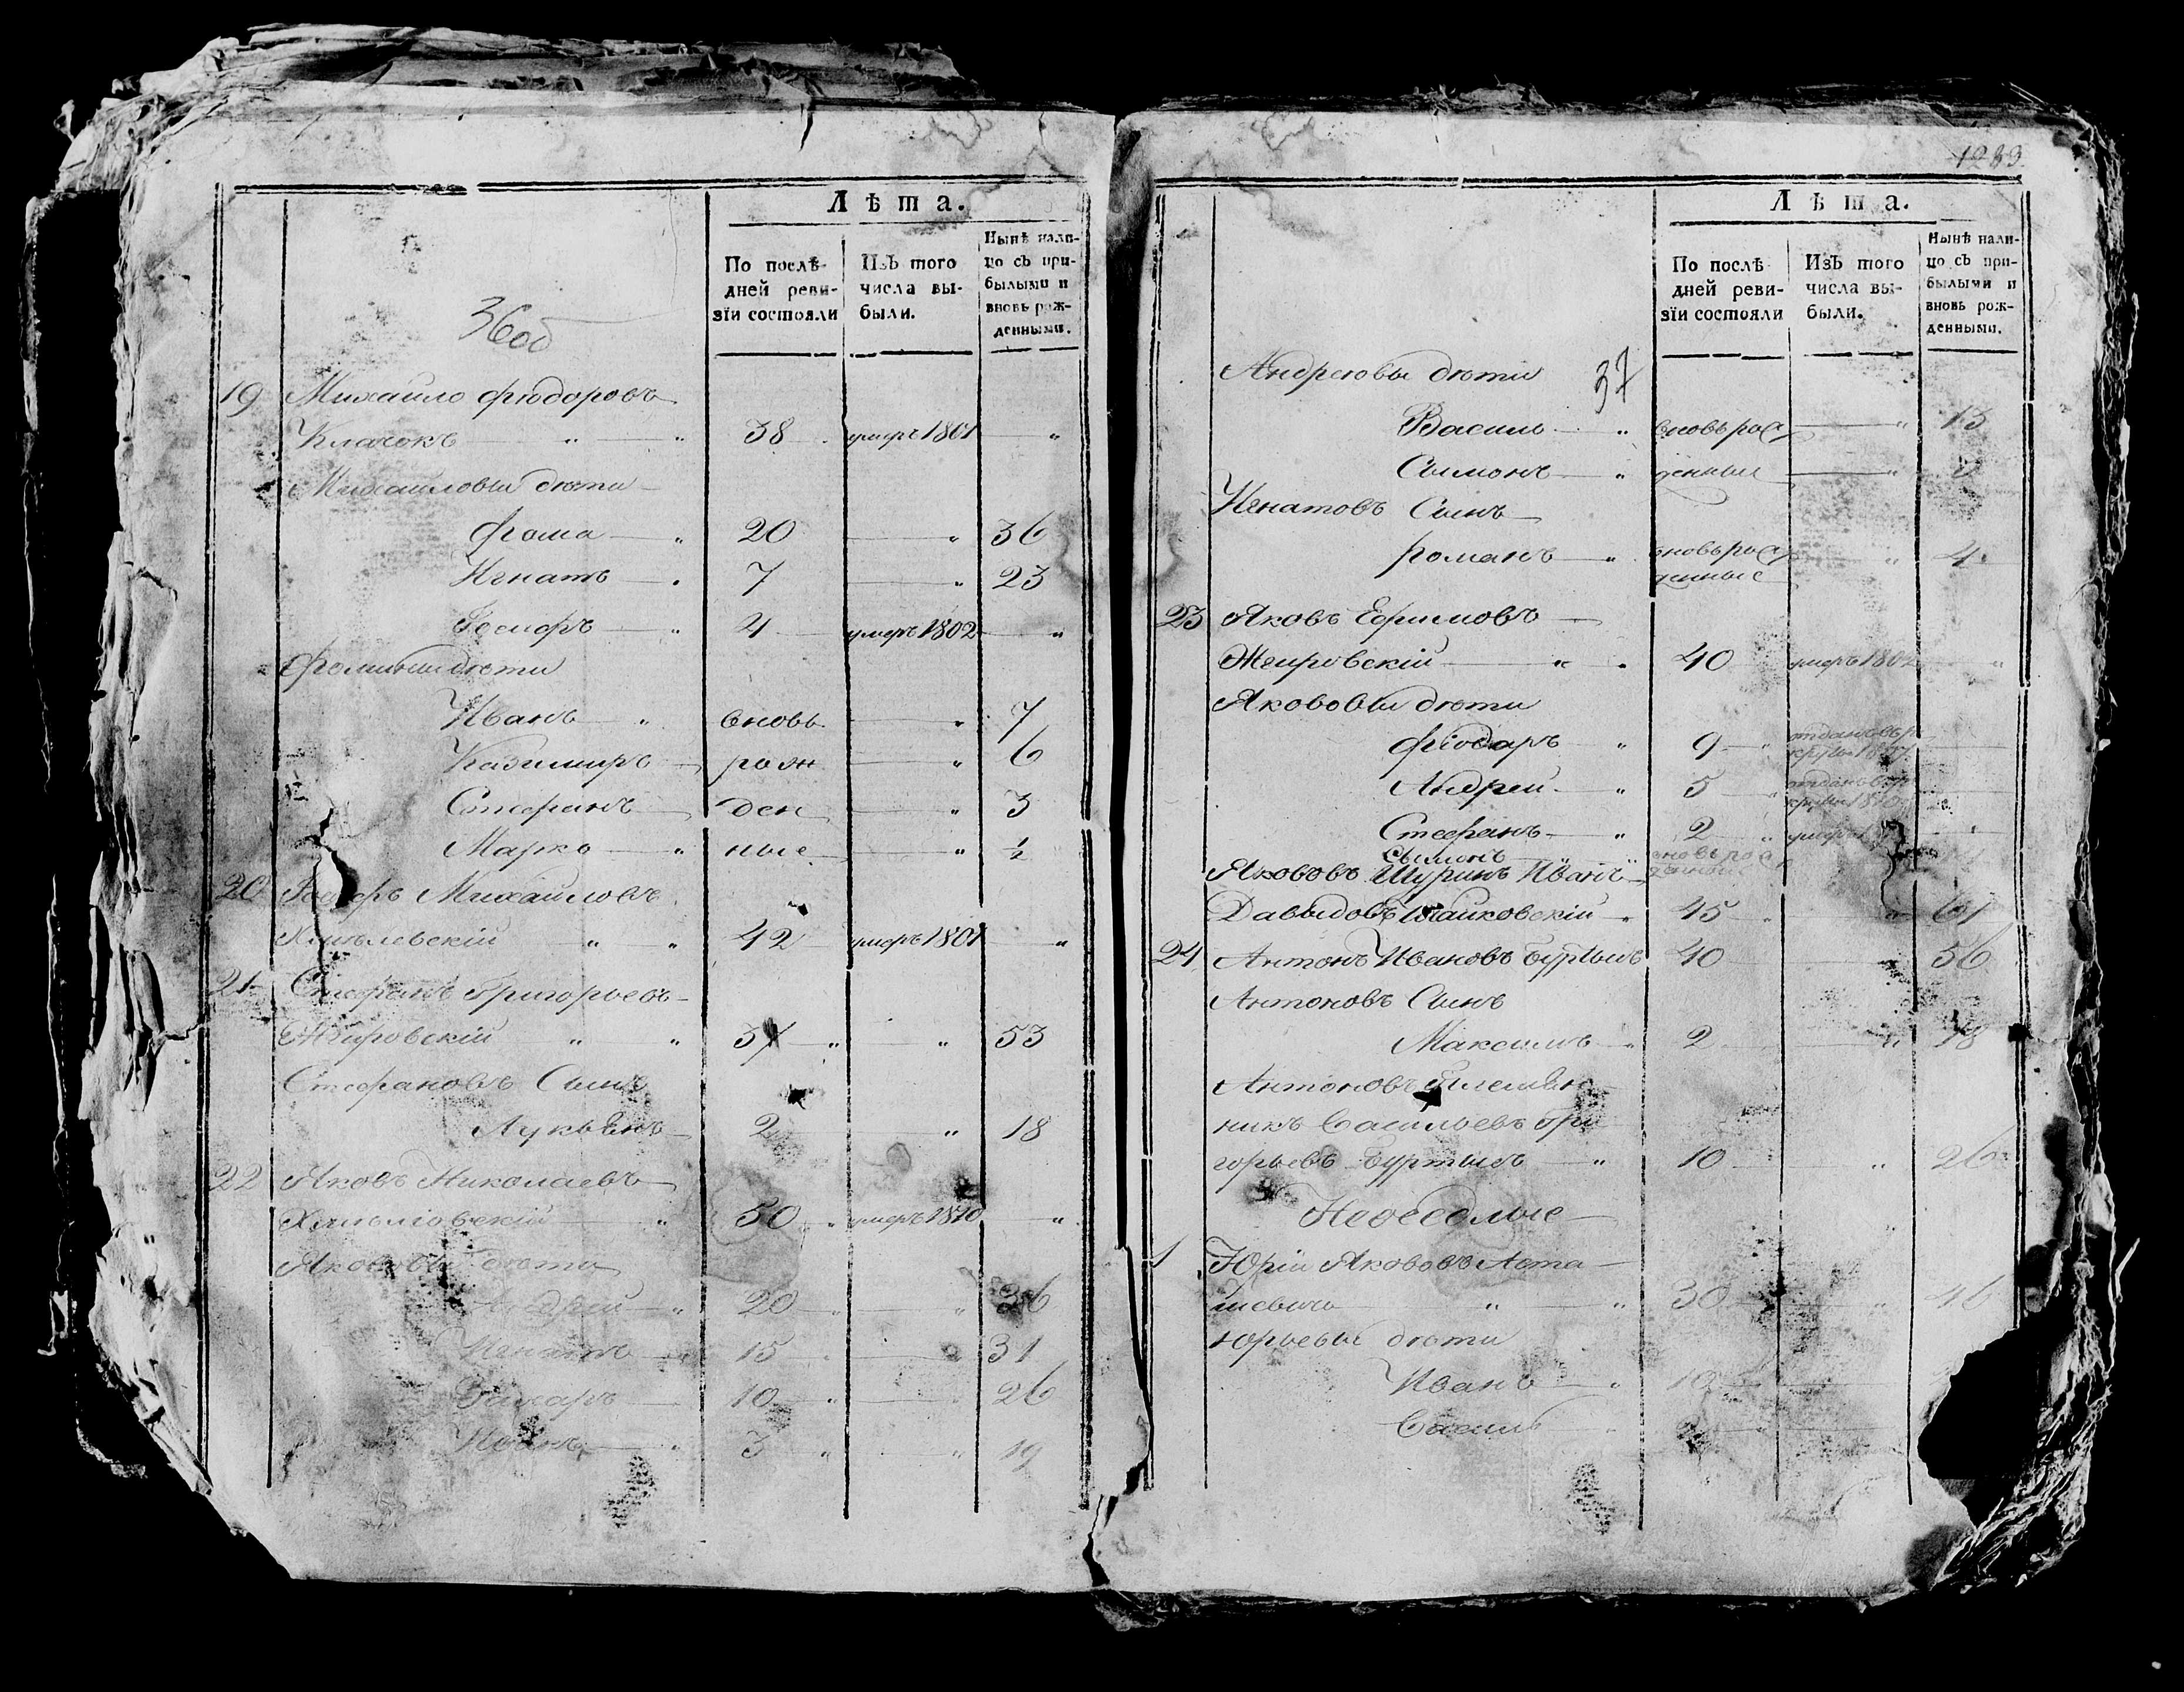 Лѣта.
По послѣдней ревизїи состояли
ИзЪ того числа выбыли.
Нынѣ налицо сЪ прибылыми и вновь рожденными.
36об
19 Михайло Фіодоровъ
Клачокъ " " 38 умеръ 1801 "
Михайловы дѣти
Фома " 20 " 36
Игнатъ 7 " 23
4 умеръ 1802 "
Фомины дѣти
Иванъ " вновь " 7
Казимиръ рож " 6
Стефанъ ден " 3
Марко " ные " ½
20 Михайловъ
" " 42 умеръ 1801 "
21 Стефанъ Григорьевъ
Жгировскій " " 37 " " 53
Стефановъ Сынъ
Лукьянъ 2 " 18
22 Яковъ Николаевъ
" 50 " умеръ 1810 "
Яковавы дѣти
Андрей " 20 " " 36
Игнатъ 15 " " 31
Захаръ 10 " 26
Иванъ " 3 " " 19
1283
Лѣта.
По послѣдней ревизїи состояли
ИзЪ того числа выбыли.
Нынѣ налицо сЪ прибылыми и вновь рожденными.
37
Андреювы дѣти
Василь " вновь рож " 13
Сымонъ " денныя "
Игнатовъ Сынъ
Романъ " вновь рож " 4
денные
23 Яковъ Ефимовъ
Жгировскій " " 40 умеръ "
Якововы дѣти
Фіодаръ " 9 отданъ въ ре
круты
Андрей " 5 " отданъ въ ре
круты 1810
Стефанъ " 2 " умеръ
Сымонъ " вновь рож
Якововъ Шуринъ Иванъ денной
Давыдовъ " 45 " " 61
24 Антонъ Ивановъ Буртыль 40 56
Антоновъ Сынъ
Максимъ " 2 " 18
Антоновъ Племян
никъ Васильевъ Гри
горьевъ " 10 " 26
Неоседлые
1 Юрій Якововъ Аста
шевичъ " " 30 " 46
Юрьевы дѣти
Иванъ " 10
Василь "